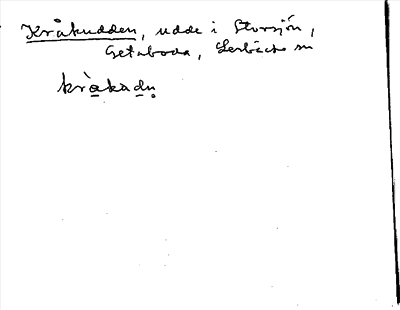 Kråkudden, udde i Storsjön,
Getaboda, Lerbäcks sn
kràkadṇ